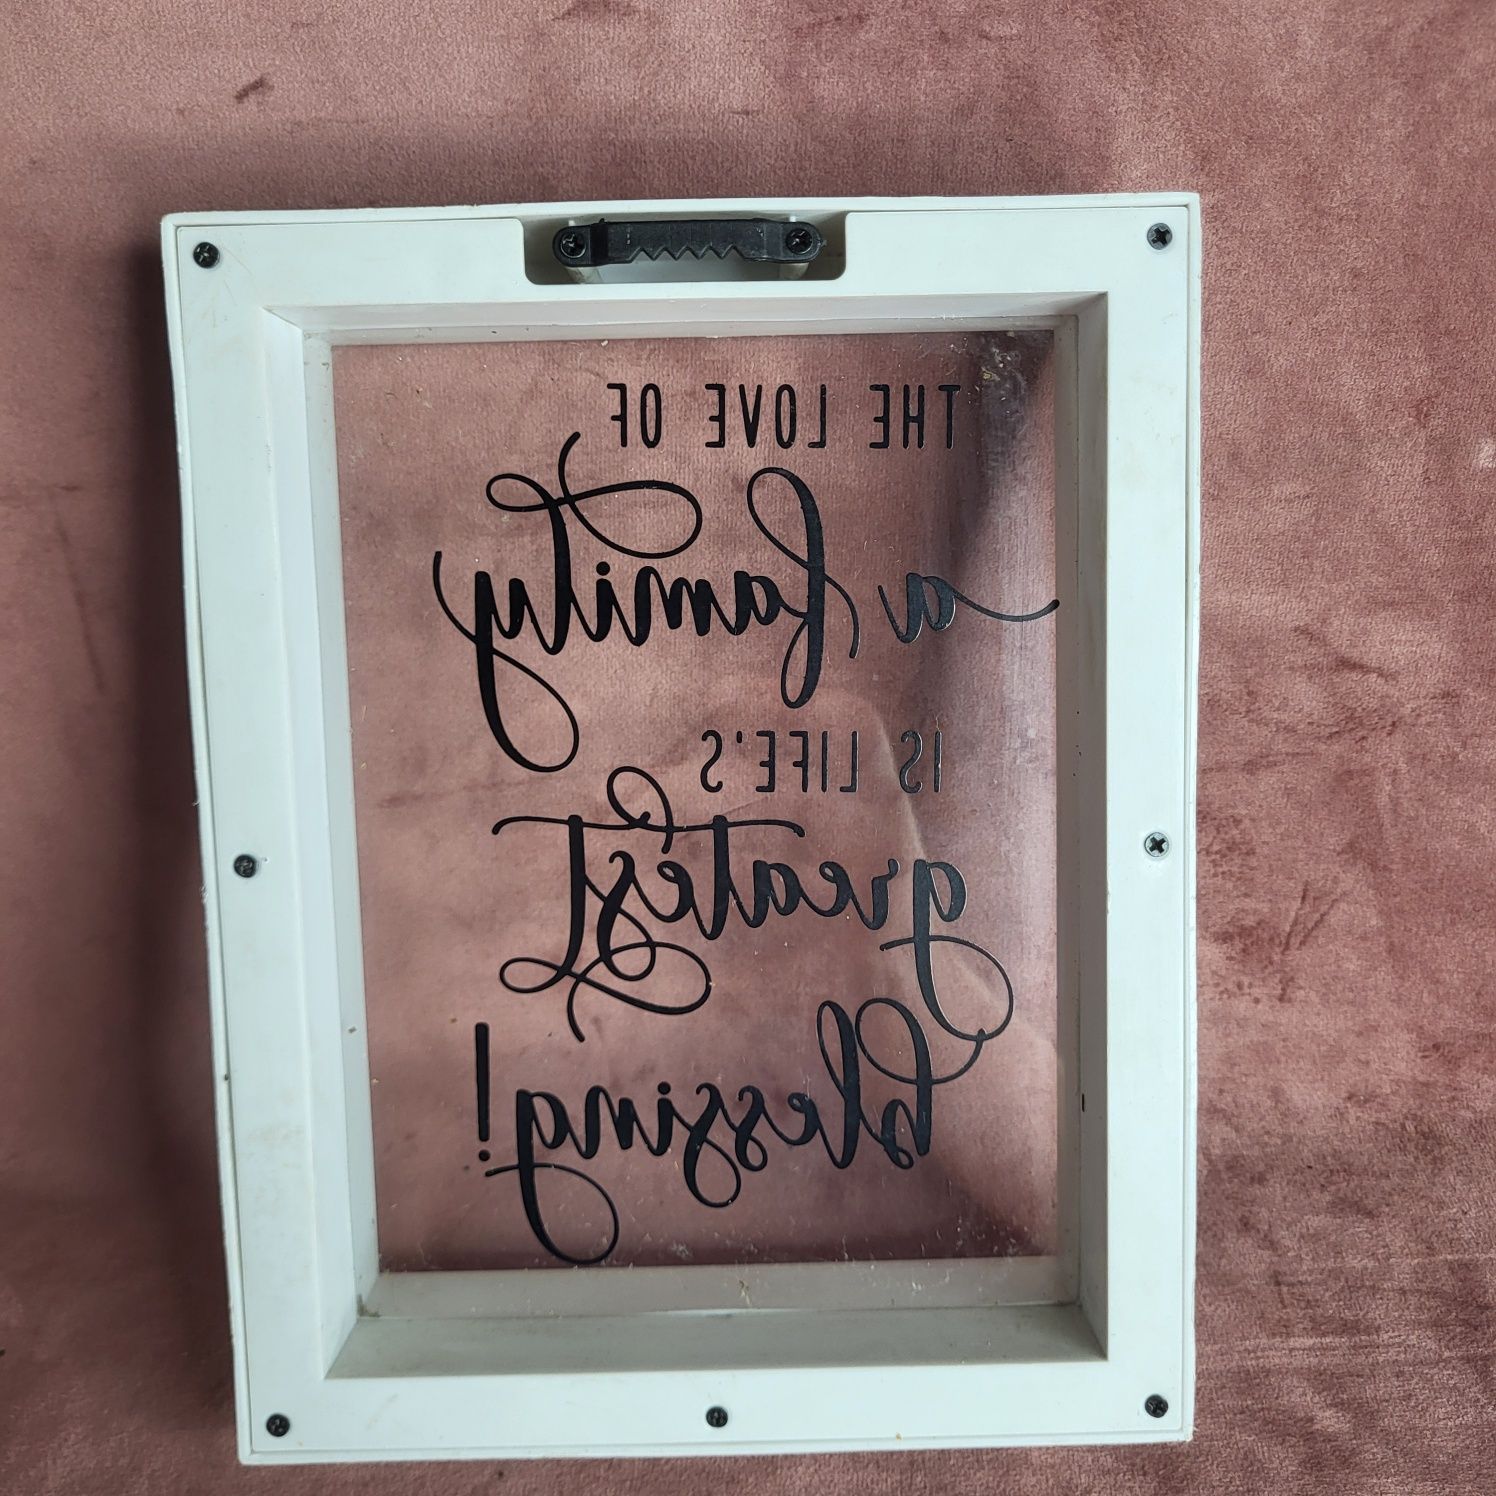 THE LOVE OF
a family
IS LIFE'S
greatest
blessing!